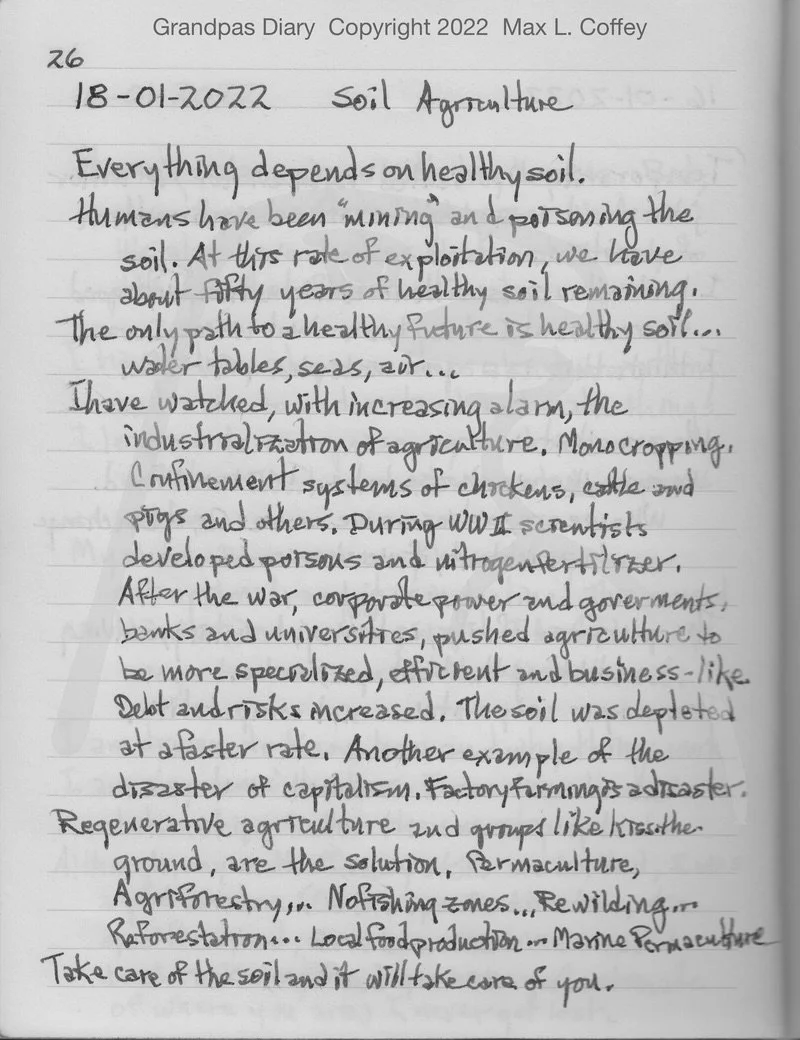 Grandpas Diary Copyright 2022 Max L. Coffey
26
18-01-2022 Soil Agriculture
Everything depends on healthy soil.
Humans have been "mining" and poisoning the
soil. At this rate of exploitation, we have
about fifty years of healthy soil remaining.
The only path to a healthy future is healthy soil...
water tables, seas, air...
I have watched, with increasing alarm, the
industrialization of agriculture. Monocropping.
Confinement systems of chickens, cattle and
pigs and others. During WWII scientists
developed poisons and nitrogen fertilizer.
After the war, corporate power and goverments,
banks and universities, pushed agriculture to
be more specialized, efficient and business-like.
Debt and risks increased. The soil was depleted
at a faster rate. Another example of the
disaster of capitalism. Factory farming is a disaster.
Regenerative agriculture and groups like kiss the
ground, are the solution, Permaculture,
Agriforestry... No fishing zones... Rewilding...
Reforestation... Local food production... Marine Permaculture
Take care of the soil and it will take care of you.